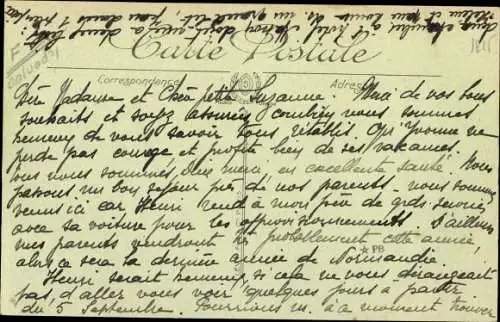 Carte Postale
Correspondance
Adresse
F
Calvados
Chère Madame et Chère petite Suzanne. Merci de vos bons
souhaits et soyez assurées combien nous sommes
heureux de vous savoir tous rétablis. Que Yvonne ne
perde pas courage et profite bien de ses vacances.
Ici nous sommes, Dieu merci, en excellente santé. Nous
passons un bon séjour près de nos parents - nous sommes
venus ici car Henri rend à mon père de grds services
avec sa voiture pour les approvisionnements. D'ailleurs
mes parents vendront probablement cette année,
alors ce sera la dernière année de Normandie.
★ PB
Henri serait heureux, si cela ne vous dérangeait
pas, d'aller vous voir quelques jours à partir
du 5 Septembre. Pourrions ns. à ce moment trouver